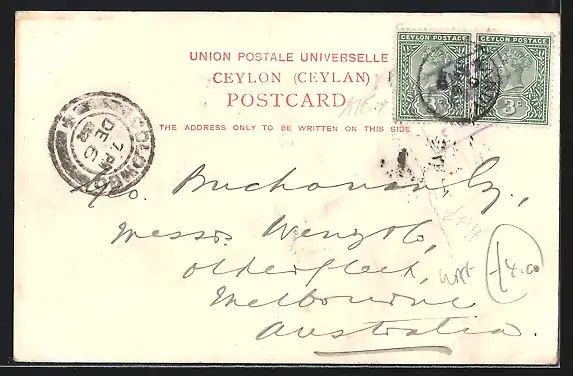 UNION POSTALE UNIVERSELLE
CEYLON (CEYLAN)
POSTCARD
THE ADDRESS ONLY TO BE WRITTEN ON THIS SIDE
CEYLON POSTAGE
3c
CEYLON POSTAGE
3c
COLOMBO
7 PM
DE 6
Geo. Buchanan, Esq.,
Messrs
Melbourne
Australia.
4.00